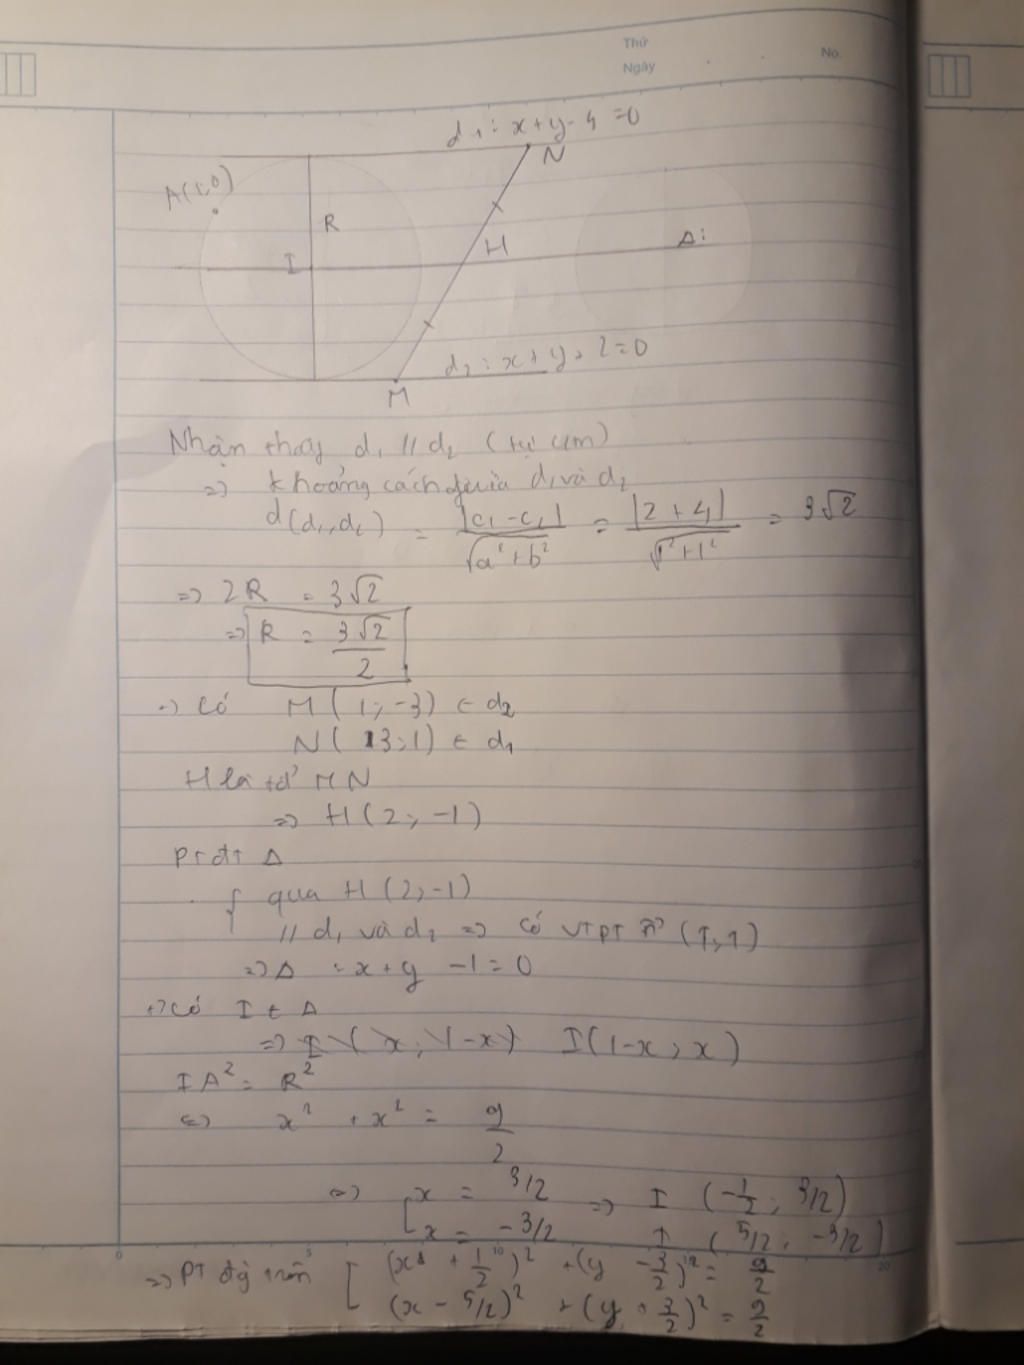 Thứ
Ngày
No.
d₁: x+y-4=0
N
A(1;0)
R
H
Δ:
I
d₂: x+y+2=0
M
Nhận thấy d₁ // d₂ (tự cm)
=> khoảng cách giữa d₁ và d₂
d(d₁,d₂) = |c₁-c₂|/√(a²+b²) = |2+4|/√(1²+1²) = 3√2
=> 2R = 3√2
=> R = 3√2/2
-) Có M(1;-3) ∈ d₂
N(3;1) ∈ d₁
H là tđ MN
=> H(2;-1)
PTĐT Δ
{ qua H(2;-1)
// d₁ và d₂ => có VTPT n⃗(1,1)
=> Δ : x+y-1=0
+) Có I ∈ Δ
=> I(x; 1-x) I(1-x; x)
IA² = R²
<=> x² + x² = 9/2
<=> [ x = 3/2 => I (-1/2; 3/2)
x = -3/2 I (5/2; -3/2)
0 5 10 20
=> PT đg tròn [ (x + 1/2)² + (y - 3/2)² = 9/2
(x - 5/2)² + (y + 3/2)² = 9/2